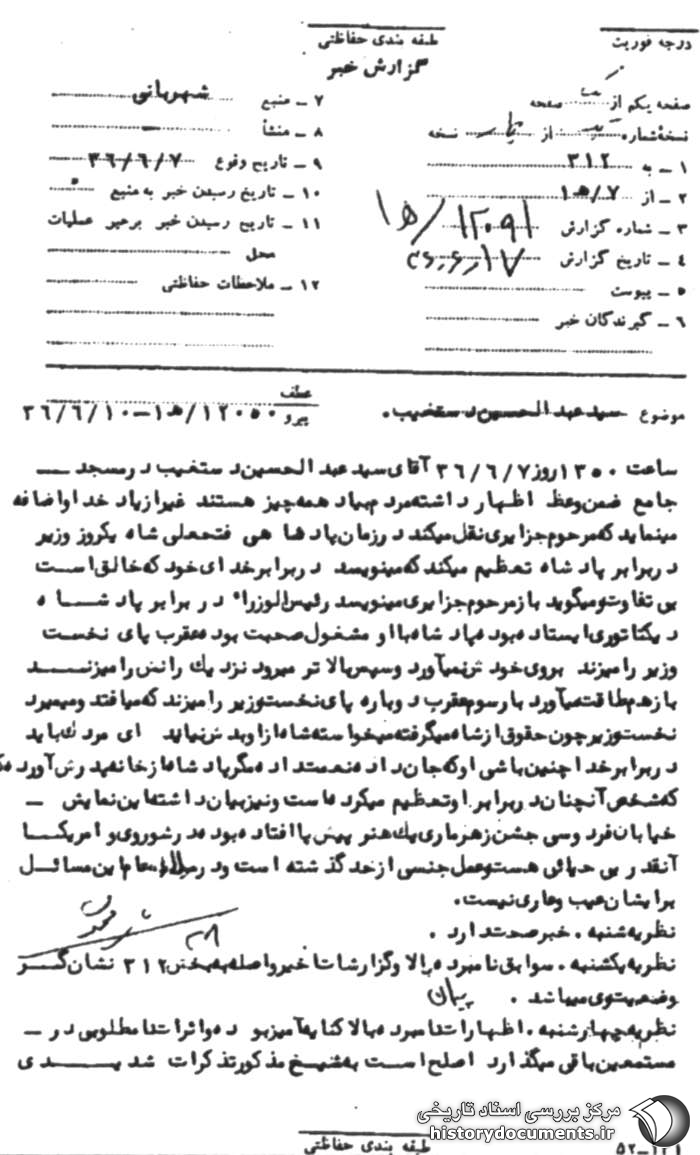 طبقه بندی حفاظتی
درجه فوریت
گزارش خبر
صفحه یکم از یک صفحه
نسخهٔ شماره از نسخه
۱ ـ به ۳۱۲
۲ ـ از ۷/ه‍ ۱
۳ ـ شماره گزارش ۱۲۰۹۱/ه‍ ۱
۴ ـ تاریخ گزارش ۳۶٫۶٫۱۷
۵ ـ پیوست
۶ ـ گیرندگان خبر
۷ ـ منبع شهربانی
۸ ـ منشأ ـ
۹ ـ تاریخ وقوع ۳۶/۶/۷
۱۰ ـ تاریخ رسیدن خبر به منبع
۱۱ ـ تاریخ رسیدن خبر برهبر عملیات
محل
۱۲ ـ ملاحظات حفاظتی
موضوع سید عبدالحسین دستغیب.
عطف
پیرو ۱۲۰۵۰/ه‍ ۱ـ۳۶/۶/۱۰
ساعت ۱۳۵۰ روز ۳۶/۶/۷ آقای سید عبدالحسین دستغیب در مسجد ـ
جامع ضمن وعظ اظهار داشته مردم بیاد همه چیز هستند غیر از یاد خدا و اضافه
مینماید که مرحوم جزایری نقل میکند در زمان پادشاهی فتحعلی شاه یکروز وزیر
در برابر پادشاه تعظیم میکند که مینویسد در برابر خدای خود که خالق است
بی تفاوت و میگوید باز مرحوم جزایری مینویسد رئیس الوزراء در برابر پادشاه
دیکتاتوری ایستاده بوده پادشاه با او مشغول صحبت بوده عقرب پای نخست
وزیر را میزند بروی خودش نمیآورد و سپس بالاتر میرود نزدیک رانش را میزنند
باز هم طاقت میآورد بار سوم عقرب دوباره پای نخست وزیر را میزند که میافتد و میمیرد
نخست وزیر چون حقوق از شاه میگرفته میخواسته شاه از او بدش نیاید ای مردک باید
در برابر خدا چنین باشی او که جان داده نعمت داده مگر پادشاه از خانه پدرش آورده
که شخص آنچنان در برابر او تعظیم میکرده است و نیز بیان داشته این نمایش ـ
خیابان فردوسی جشن زهرماری یک هنر پیش پا افتاده بوده در شوروی و امریکا
آنقدر بی حیائی هست و عمل جنسی از حد گذشته است و در ملاء عام این مسائل
برایشان عیب و عاری نیست.
نظریه شنبه . خبر صحت دارد .
نظریه یکشنبه . سوابق نامبرده بالا و گزارشات اخیر واصله به بخش ۳۱۲ نشان گر
وضعیت وی میباشد .
نظریه چهارشنبه . اظهارات نامبرده بالا کنایه آمیز بوده و اثرات نامطلوبی در ـ
مستمعین باقی میگذارد اصلح است به شیخ مذکور تذکرات شدیدی
طبقه بندی حفاظتی
مرکز بررسی اسناد تاریخی
historydocuments.ir